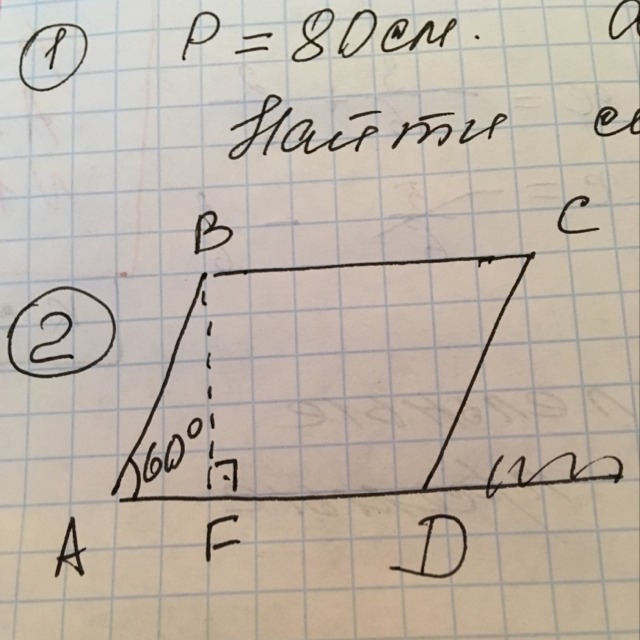 ① P = 80 см.
Найти
B C
②
60°
A F D